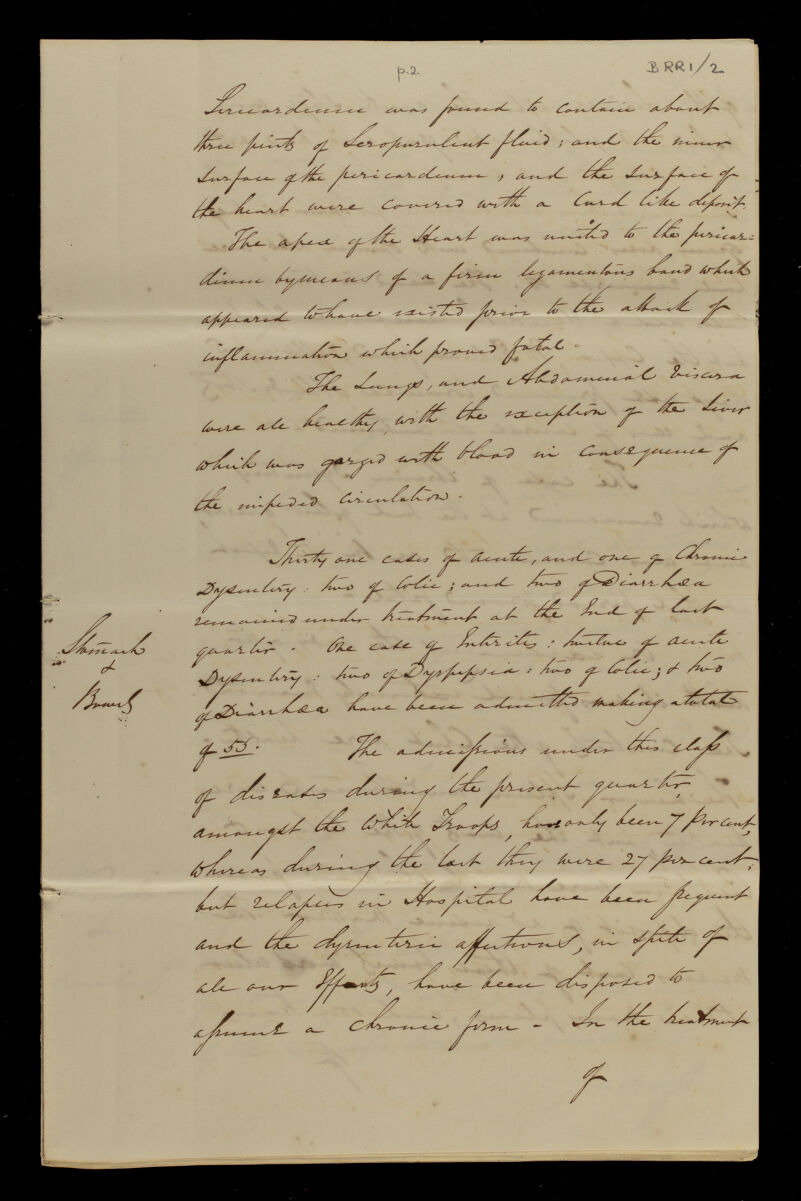 p.2
BRR1/2
Pericardium was found to contain about
three pints of Seropurulent fluid; and the inner
surface of the pericardium, and the surface of
the heart were covered with a Curd like deposit.
The apex of the Heart was united to the pericar=
dium by means of a firm legamentous band which
appeared to have existed prior to the attack of
inflammation which proved fatal.
The Lungs, and Abdominal Viscera
were all healthy, with the exception of the Liver
which was gorged with blood in consequence of
the impeded circulation.
Thirty one cases of acute, and one of Chronic
Dysentery: two of Colic; and two of Diarrhœa
remained under treatment at the End of last
quarter. One case of Enterites: twelve of acute
Stomach
&
Bowels
Dysentery: two of Dyspepsia: two of Colic; & two
of Diarrhœa have been admitted making a total
of 55. The admissions under this class
of diseases during the present quarter,
amongst the White Troops, have only been 7 per cent,
whereas during the last they were 27 per cent;
but relapses in Hospital have been frequent
and the dysenteric affections, in spite of
all our Efforts, have been disposed to
assume a chronic form - In the treatment
of